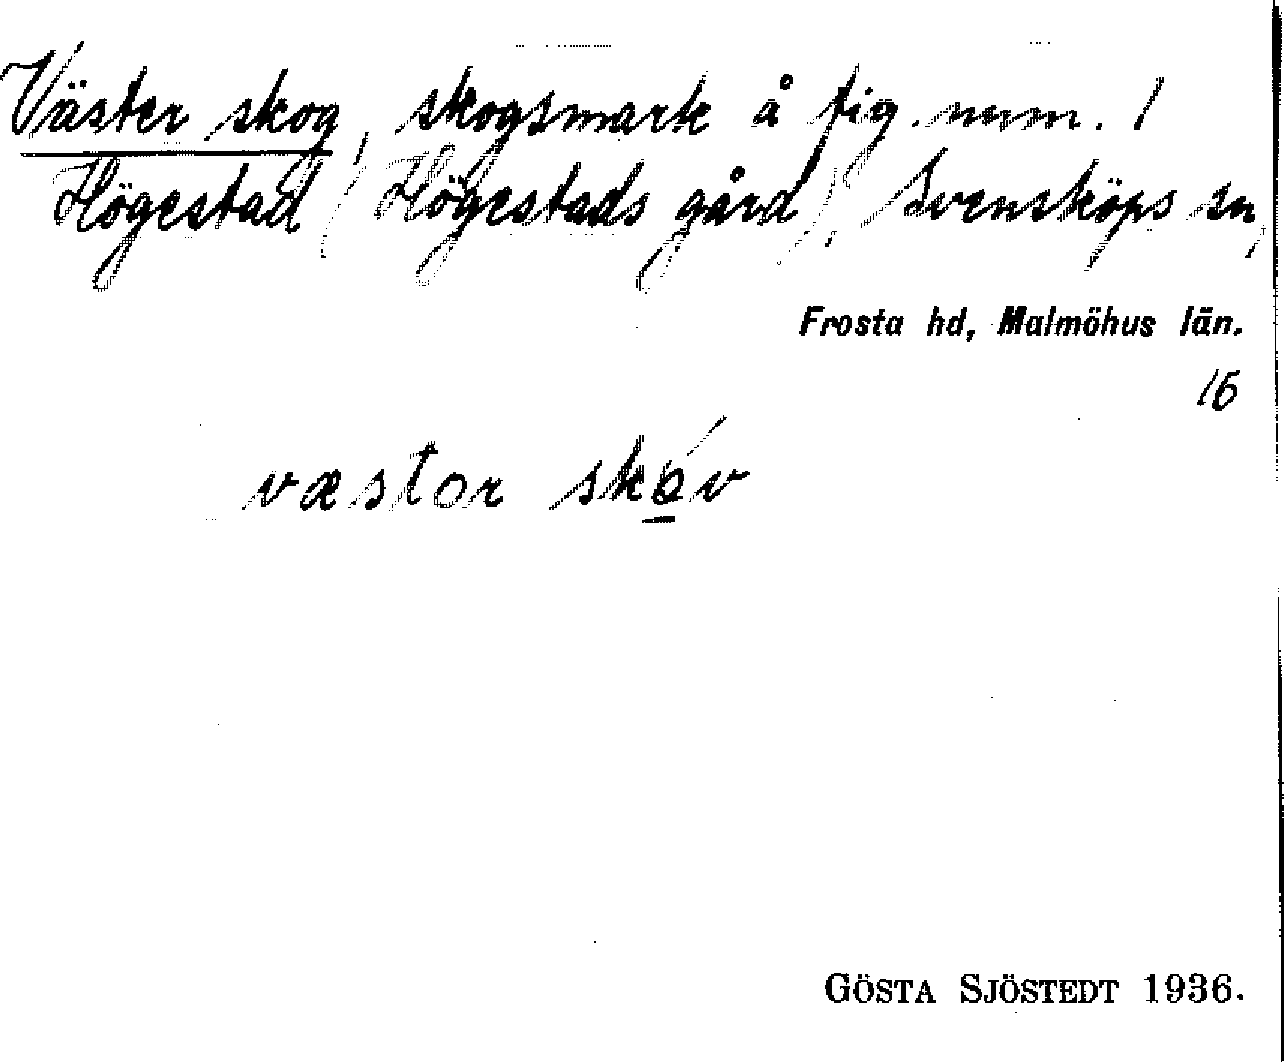 Väster skog, skogsmark å fig. num. 1
Högestad (Högestads gård), Svensköps sn,
Frosta hd, Malmöhus län.
16
væstor skóv
GÖSTA SJÖSTEDT 1936.